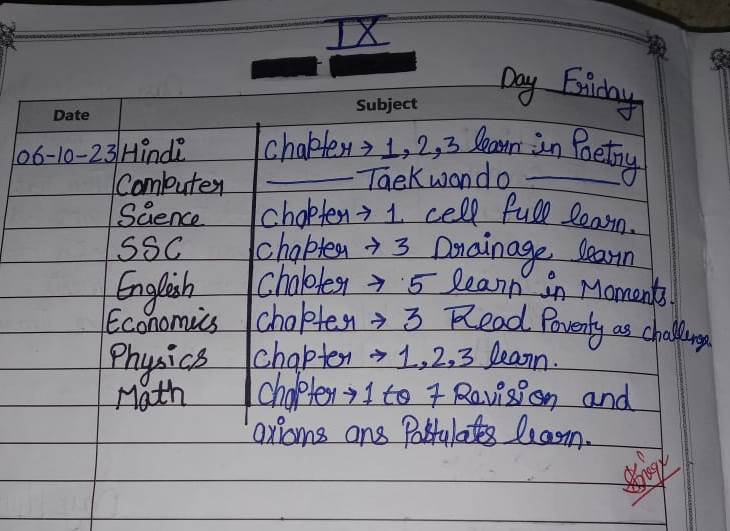 IX
Day Friday
Date Subject
06-10-23 Hindi Chapter → 1, 2, 3 learn in Poetry
Computer — Taekwondo —
Science Chapter → 1 cell full learn.
SSC Chapter → 3 Drainage learn
English Chapter → 5 learn in Moments.
Economics Chapter → 3 Read Poverty as challenge.
Physics Chapter → 1, 2, 3 learn.
Math Chapter → 1 to 7 Revision and
axioms ans Postulates learn.